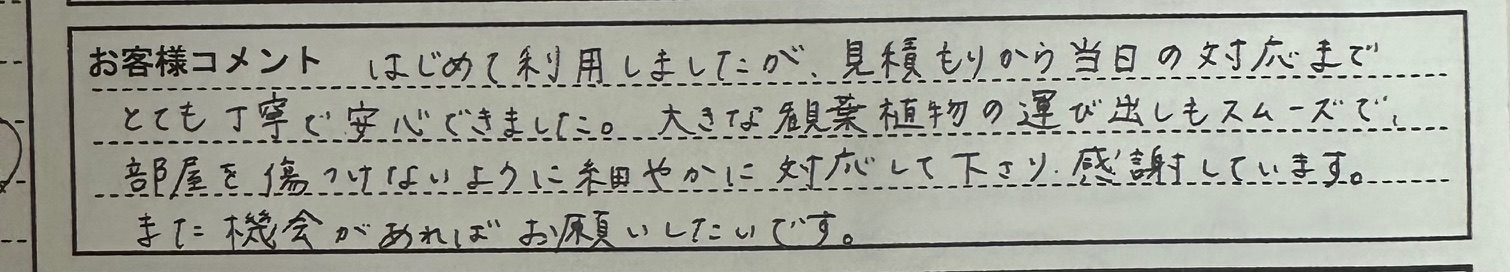 お客様コメント はじめて利用しましたが、見積もりから当日の対応まで
とても丁寧で安心できました。大きな観葉植物の運び出しもスムーズで、
部屋を傷つけないように細やかに対応して下さり、感謝しています。
また機会があればお願いしたいです。